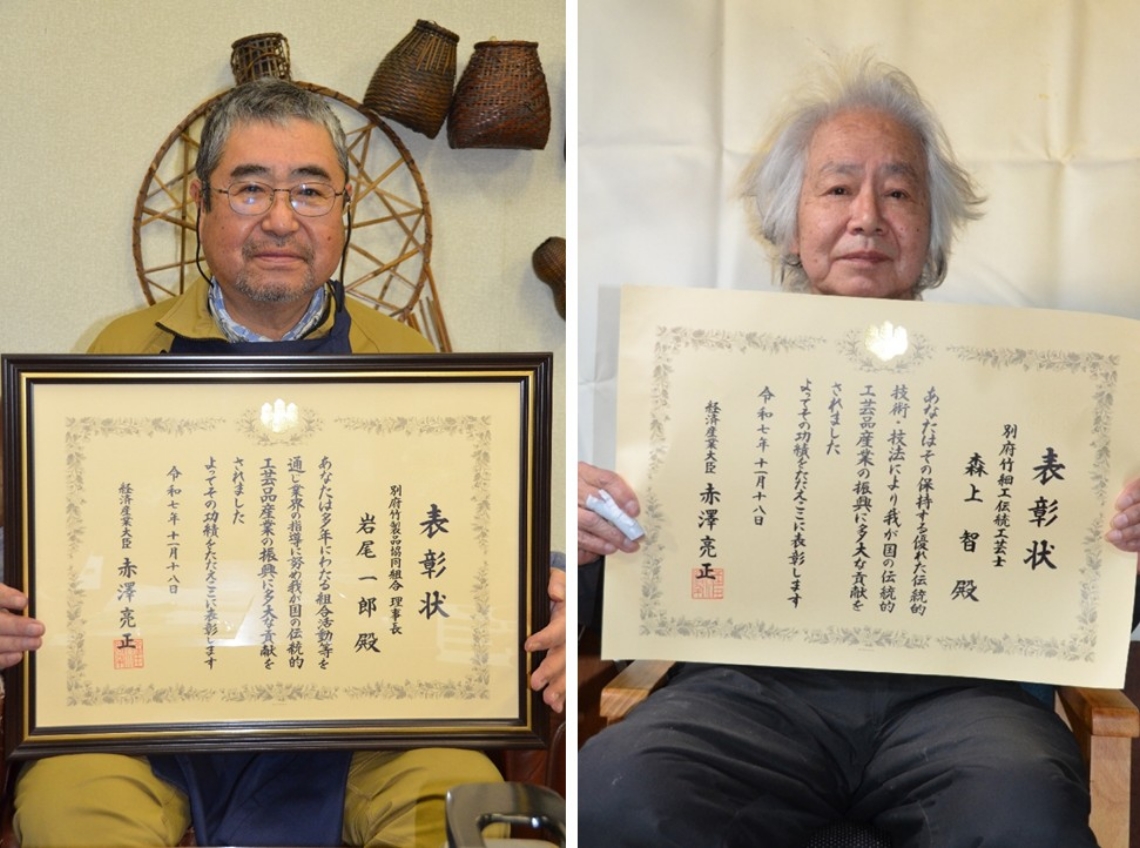 表彰状
別府竹製品協同組合 理事長
岩尾一郎 殿
あなたは多年にわたる組合活動等を
通し業界の指導に努め我が国の伝統的
工芸品産業の振興に多大な貢献を
されました
よってその功績をたたえここに表彰します
令和七年 十一月十八日
経済産業大臣 赤澤亮正
表彰状
別府竹細工伝統工芸士
森上智 殿
あなたはその保持する優れた伝統的
技術・技法により我が国の伝統的
工芸品産業の振興に多大な貢献を
されました
よってその功績をたたえここに表彰します
令和七年 十一月十八日
経済産業大臣 赤澤亮正